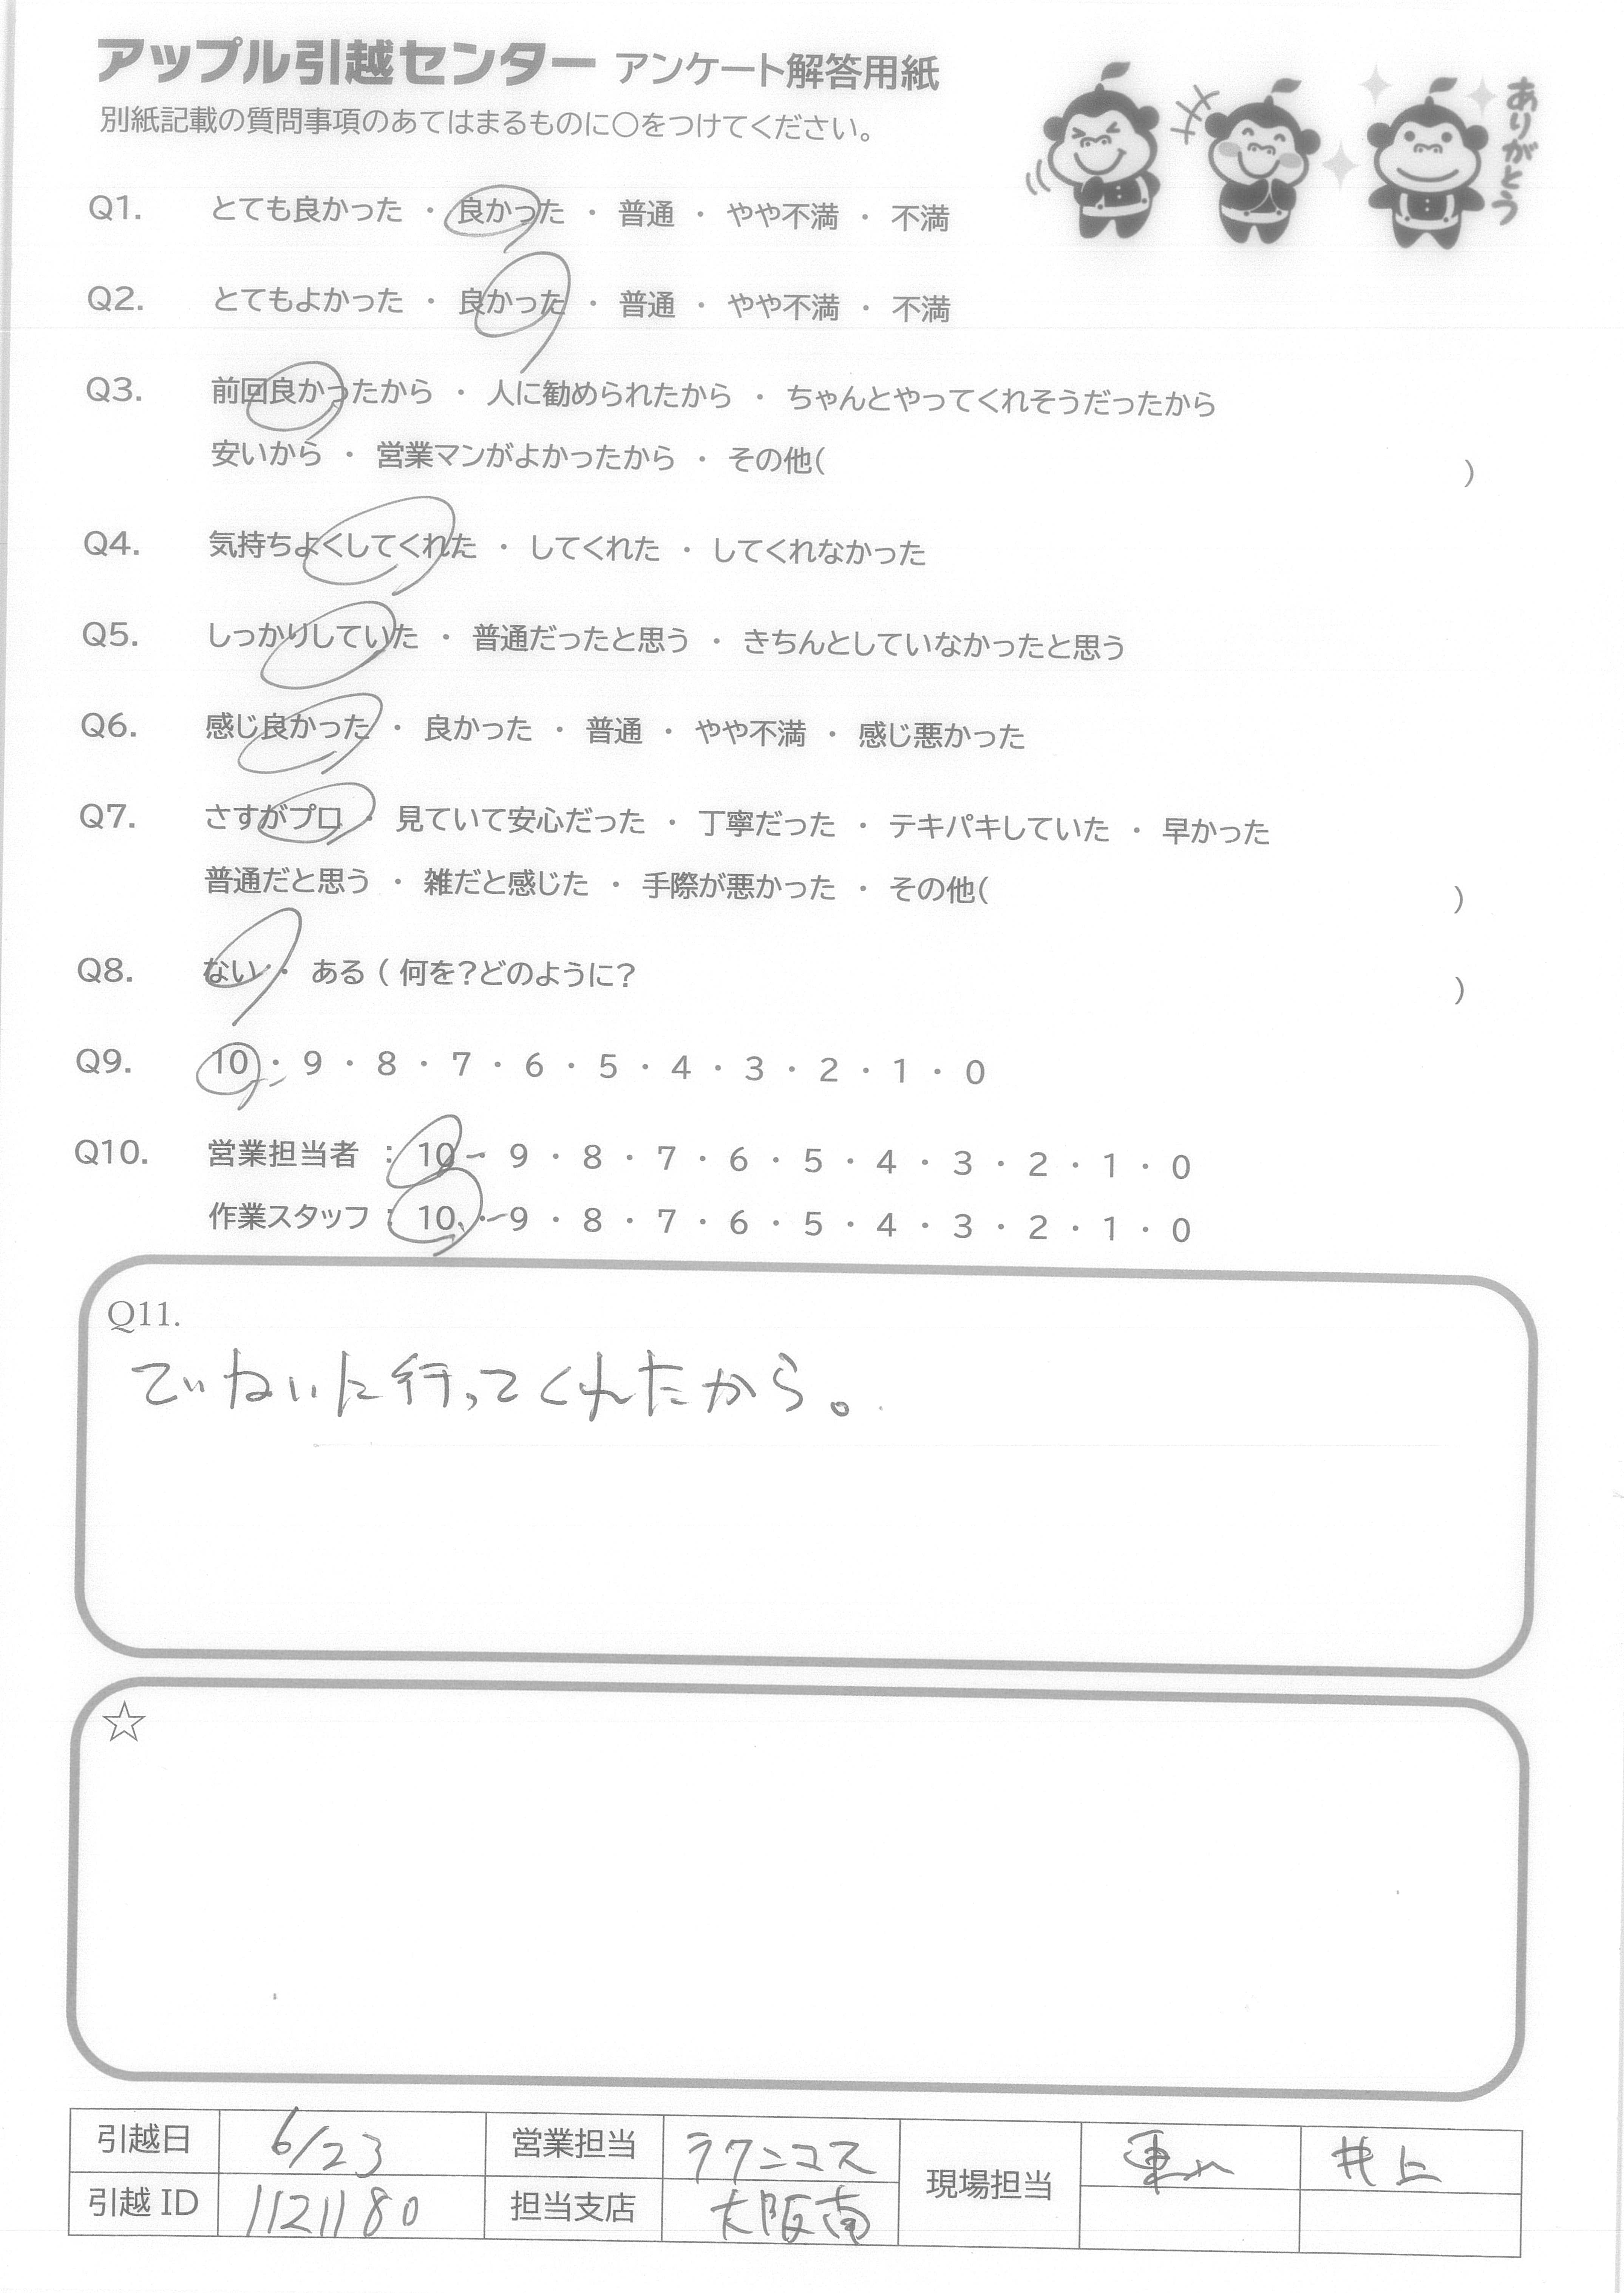 アップル引越センター アンケート解答用紙
別紙記載の質問事項のあてはまるものに○をつけてください。
ありがとう
Q1. とても良かった ・ 良かった ・ 普通 ・ やや不満 ・ 不満
Q2. とてもよかった ・ 良かった ・ 普通 ・ やや不満 ・ 不満
Q3. 前回良かったから ・ 人に勧められたから ・ ちゃんとやってくれそうだったから
安いから ・ 営業マンがよかったから ・ その他( )
Q4. 気持ちよくしてくれた ・ してくれた ・ してくれなかった
Q5. しっかりしていた ・ 普通だったと思う ・ きちんとしていなかったと思う
Q6. 感じ良かった ・ 良かった ・ 普通 ・ やや不満 ・ 感じ悪かった
Q7. さすがプロ ・ 見ていて安心だった ・ 丁寧だった ・ テキパキしていた ・ 早かった
普通だと思う ・ 雑だと感じた ・ 手際が悪かった ・ その他( )
Q8. ない ・ ある ( 何を?どのように? )
Q9. 10 ・ 9 ・ 8 ・ 7 ・ 6 ・ 5 ・ 4 ・ 3 ・ 2 ・ 1 ・ 0
Q10. 営業担当者 : 10 ・ 9 ・ 8 ・ 7 ・ 6 ・ 5 ・ 4 ・ 3 ・ 2 ・ 1 ・ 0
作業スタッフ : 10 ・ 9 ・ 8 ・ 7 ・ 6 ・ 5 ・ 4 ・ 3 ・ 2 ・ 1 ・ 0
Q11.
ていねいに行ってくれたから。
☆
引越日 6/23 営業担当 ラクニコス 現場担当 井上
引越 ID 1121180 担当支店 大阪南